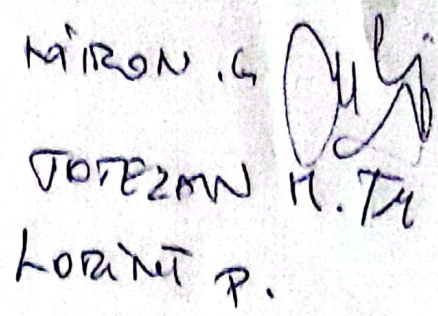 MIRON .G
TOTEZAN M. TR
LORINT P.